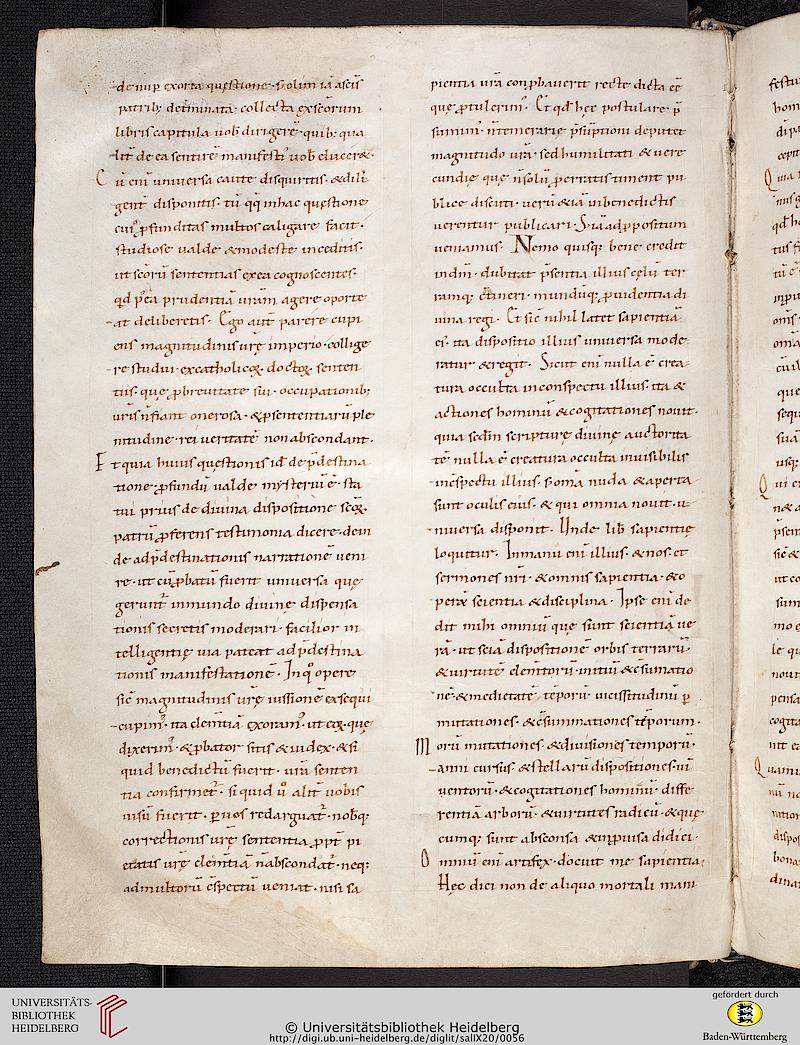 de nup exorta questione. s; olim iã a scis
patrib; determinata. collecta ex eorum
libris capitula uob dirigerẽ. quib; qua
lit̃ de ea sentirẽ manifesti' uob elucerẽ.
Cũ eni' uniuersa caute disquiritis. & dili
gent̃ disponitis. tũ q̃q in hac questione
cui' pfunditas multos caligare facit.
studiose ualde & modeste inceditis.
ut scõrũ sententias ex ea cognoscentes.
qd p ea prudentiã uram agere oporte
at deliberetis. Ego aut̃ parere cupi
ens magnitudinis urę imperio. collige
re studui ex catholicoꝝ doctoꝝ senten
tiis. que p breuitate sui. occupationib;
uris ñ fiant onerosa. & p sententiarũ ple
nitudine. rei ueritatẽ non abscondant.
Et quia huius questionis id ẽ de pdestina
tione. pfundũ ualde mysteriũ ẽ. sta
tui prius de diuina dispositione scoꝝ
patrũ pferens testimonia dicere. dein
de ad pdestinationis narrationẽ ueni
re. ut cũ pbatũ fuerit uniuersa quę
gerunt̃ in mundo diuine dispensa
tionis secretis moderari. facilior in
telligentię uia pateat ad pdestina
tionis manifestationẽ. In q̊ opere
sic̃ magnitudinis urę iussionẽ exsequi
cupim'. ita clem̃tiã exoram'. ut eoꝝ. quę
dixerim'. & pbator sitis & iudex. & si
quid bene dictũ fuerit. ura senten
tia confirmet̃. si quid ũ alit̃ uobis
uisũ fuerit. p uos redarguat̃. nobq;
correctionis urę sententia ppt̃ pi
etatis urę clem̃tiã ñ abscondat̃. neq;
ad multorũ cspectũ ueniat. nisi sa
pientia ura conpbauerit recte dicta eẽ
quę ptulerim'. Et qd hęc postulare p
sumim'. ñ temerarię psũptioni deputet
magnitudo ura. sed humilitati & uere
cundię. que ñ solũ p erratis timent pu
blice discuti. uerũ & iã ui bene dictis
uerentur publicari. S; iã ad ppositum
ueniamus. Nemo quisq; bene credit
in dm̃. dubitat psentia illius celũ ter
ramq; c̃tineri. mundũq; puidentia di
uina regi. Et sic̃ nihil latet sapientiã
ei'. ita dispositio illius uniuersa mode
ratur & regit. Sicut eni' nulla ẽ crea
tura occulta in conspectu illius. ita &
actiones hominũ & cogitationes nouit.
quia scdm scripturę diuinę auctorita
tẽ nulla ẽ creatura occulta inuisibilis
in c̃spectu illius. s; oma nuda & aperta
sunt oculis eius. & qui omnia nouit. u
niuersa disponit. Unde lib sapientię
loquitur. In manu eni' illius. & nos. et
sermones nri. & omnis sapientia. & o
perũ scientia & disciplina. Ipse eni' de
dit mihi omniũ que sunt scientiã ue
rã. ut sciã dispositionẽ orbis terrarũ.
& uirtutẽ elem̃torũ. initiũ & c̃sumatio
nẽ. & medietatẽ tẽporũ. uicissitudinũ p
mutationes. & c̃summationes tẽporum.
Morũ mutationes. & diuisiones temporũ.
anni cursus. & stellarũ dispositiones. ui
uentorũ. & cogitationes hominũ. diffe
rentiã arborũ. & uirtutes radicũ. & quę
cumq; sunt absconsa & inpuisa didici.
Omniũ eni' artifex. docuit me sapientia.
Hęc dici non de aliquo mortali mani
UNIVERSITÄTS-
BIBLIOTHEK
HEIDELBERG
© Universitätsbibliothek Heidelberg
http://digi.ub.uni-heidelberg.de/diglit/salIX20/0056
gefördert durch
Baden-Württemberg